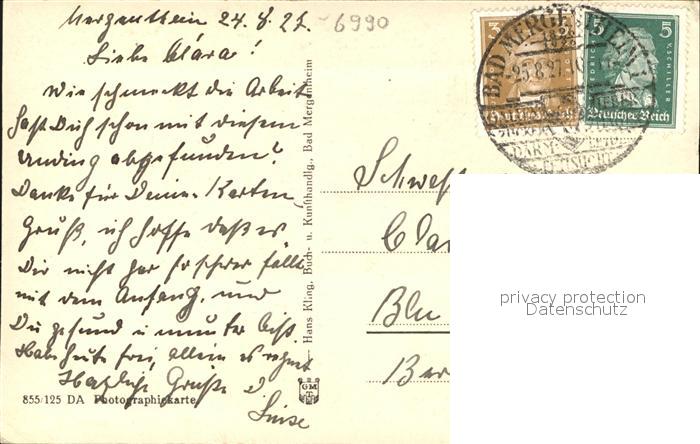 Mergentheim 24.8.27.
6990
Liebe Clara!
Wie schmeckt die Arbeit
hast Dich schon mit diesem
Unding abgefunden?
Danke für Deinen Karten
Gruß, ich hoffe daß es
Dir nicht gar so schwer fällt
mit dem Anfang. und
Du gesund u. munter bist.
Habe heute frei, allein es regnet
Herzliche Grüße D.
Luise
855/125 DA Photographiekarte.
Hans Kling, Buch- u. Kunsthandlg., Bad Mergentheim
GM
3
5
5
FRIEDRICH V. SCHILLER
Deutsches Reich
Deutsches Reich
BAD MERGENTHEIM
25.8.27.
Schwes
Cla
Blu
Ber
privacy protection
Datenschutz